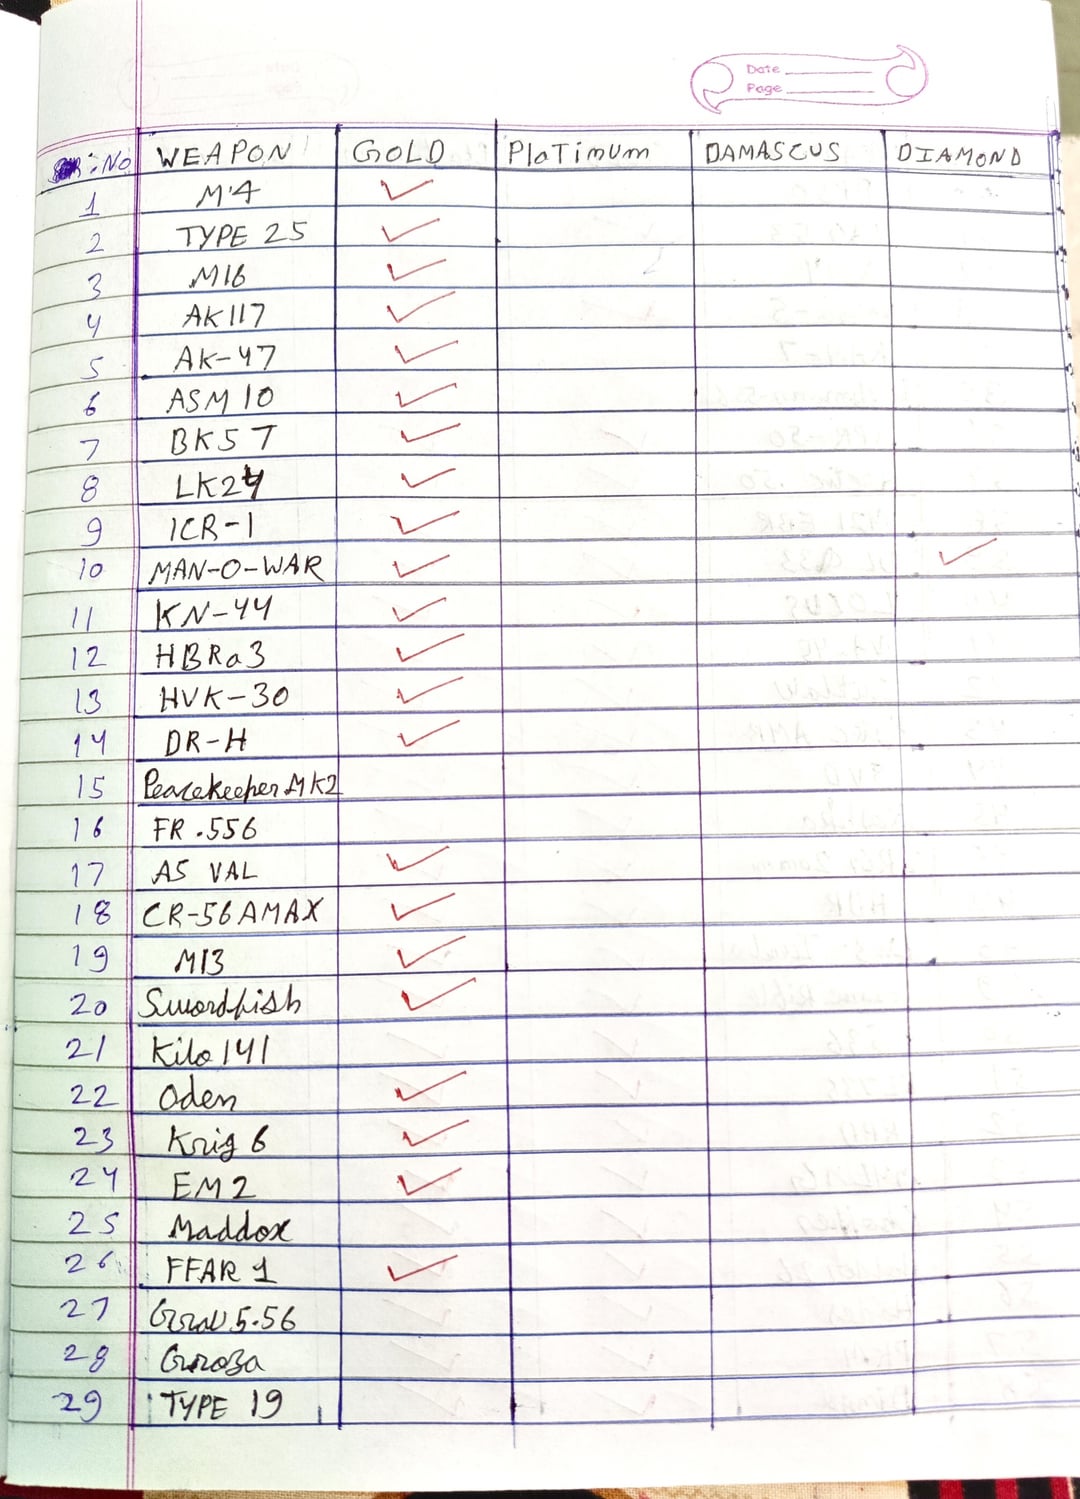 Date
Page
:No WEAPON GOLD PlaTimum DAMASCUS DIAMOND
1 M4 ✓
2 TYPE 25 ✓
3 M16 ✓
4 AK117 ✓
5 AK-47 ✓
6 ASM 10 ✓
7 BK57 ✓
8 LK24 ✓
9 ICR-1 ✓
10 MAN-O-WAR ✓ ✓
11 KN-44 ✓
12 HBRa3 ✓
13 HVK-30 ✓
14 DR-H ✓
15 Peacekeeper MK2
16 FR .556
17 AS VAL ✓
18 CR-56 AMAX ✓
19 M13 ✓
20 Swordfish ✓
21 Kilo 141
22 Oden ✓
23 Krig 6 ✓
24 EM2 ✓
25 Maddox
26 FFAR 1 ✓
27 Grau 5.56
28 Groza
29 TYPE 19